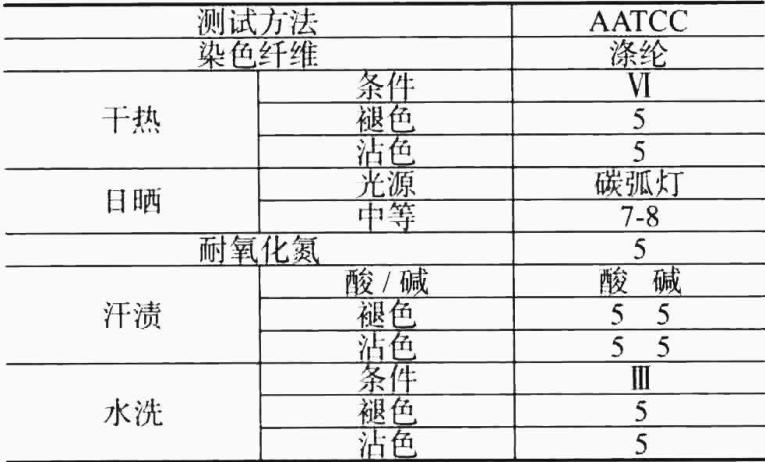 测试方法 AATCC
染色纤维 涤纶
干热 条件 Ⅵ
褪色 5
沾色 5
日晒 光源 碳弧灯
中等 7-8
耐氧化氮 5
汗渍 酸/碱 酸 碱
褪色 5 5
沾色 5 5
水洗 条件 Ⅲ
褪色 5
沾色 5